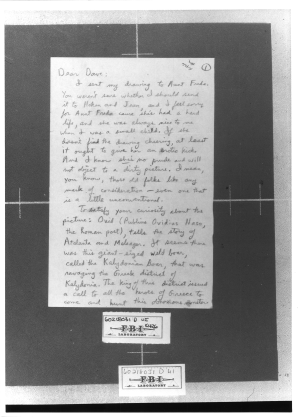 1
Dear Dave:
I sent my drawing to Aunt Freda.
You weren't sure whether I should send
it to Helen and Ivan, and I feel sorry
for Aunt Freda cause she's had a hard
life, and she was always nice to me
when I was a small child. If she
doesn't find the drawing cheering, at least
it ought to give him an erotic kick.
And I know she's no prude and will
not object to a dirty picture. I mean,
you know, these old folks like any
mark of consideration — even one that
is a little unconventional.
To satisfy your curiosity about the
picture: Ovid (Publius Ovidius Naso,
the Roman poet), tells the story of
Atalanta and Meleager. It seems there
was this giant-sized wild boar,
called the Kalydonian Boar, that was
ravaging the Greek district of
Kalydonia. The king of this district issued
a call to all the heroes of Greece to
come and hunt this
FBI
LABORATORY
FBI
LABORATORY